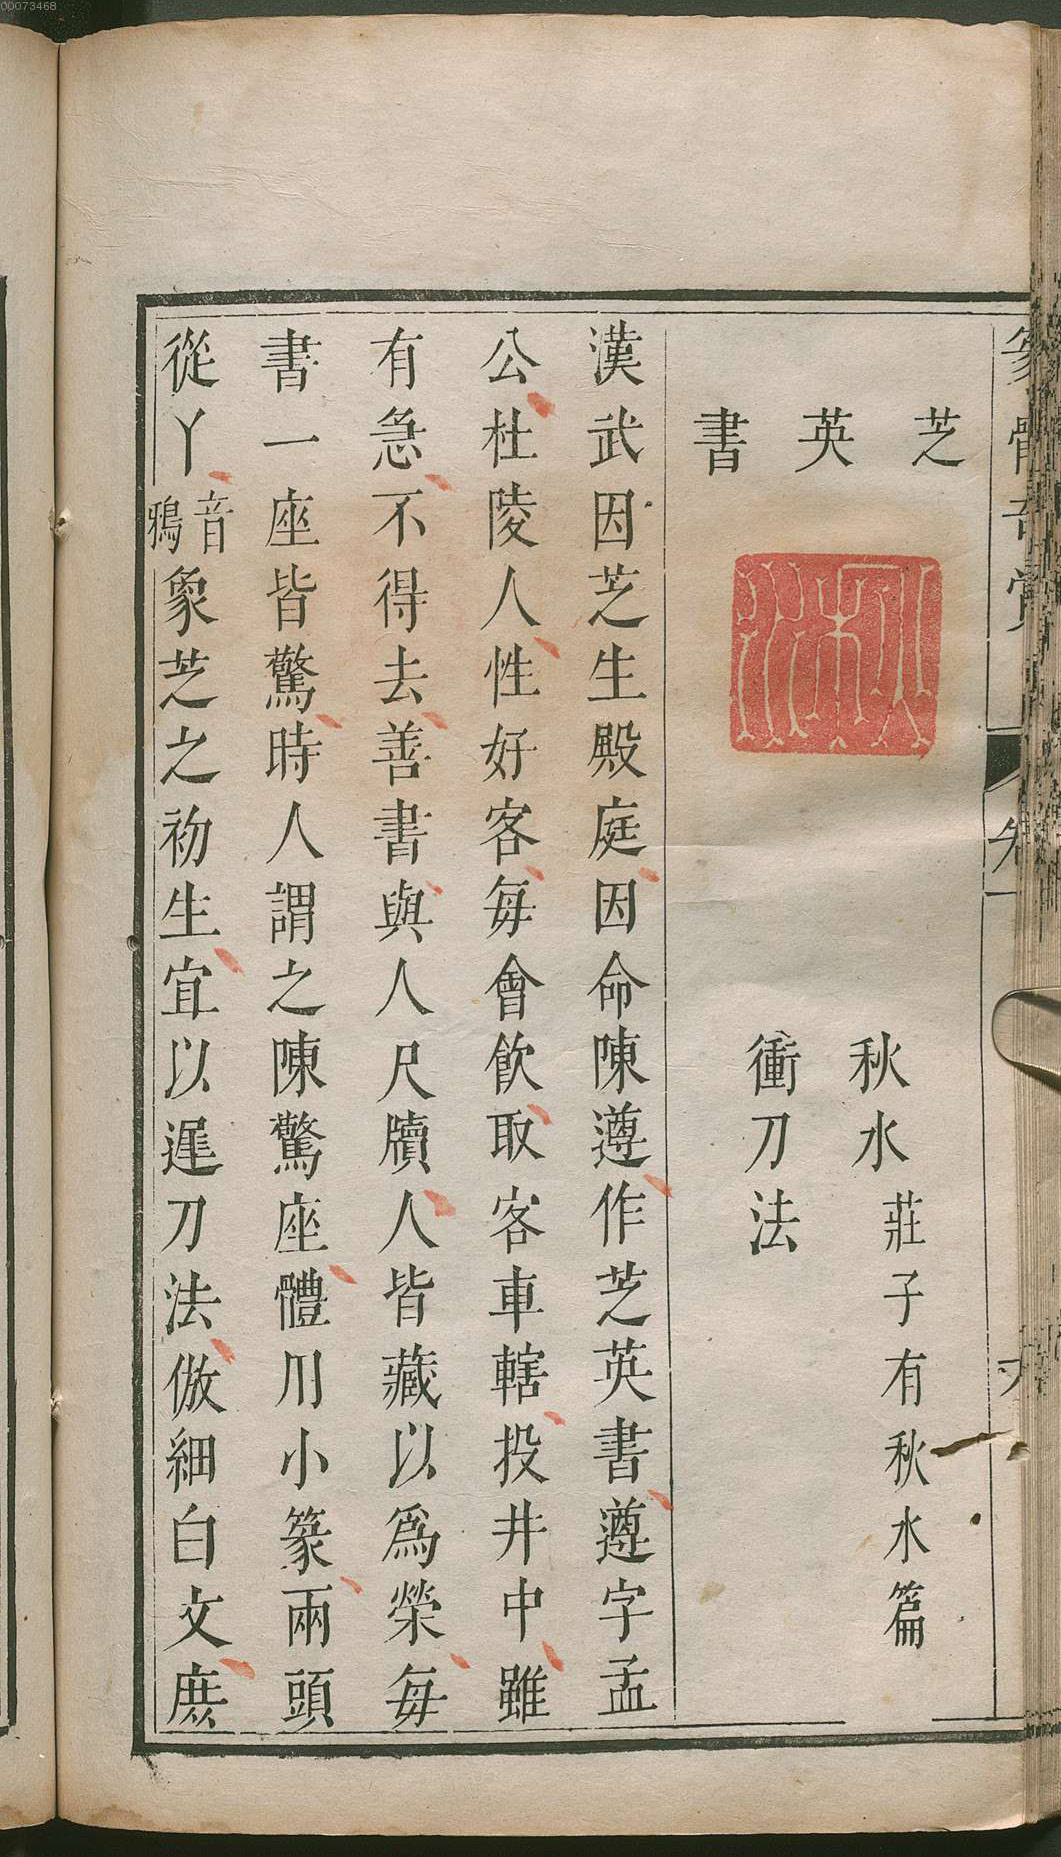 00073468
芝英書
秋水
秋水 莊子有秋水篇
衝刀法
漢武因芝生殿庭因命陳遵作芝英書遵字孟
公杜陵人性好客每會飲取客車轄投井中雖
有急不得去善書與人尺牘人皆藏以為榮每
書一座皆驚時人謂之陳驚座體用小篆兩頭
從丫音鴉象芝之初生宜以遲刀法倣細白文庶